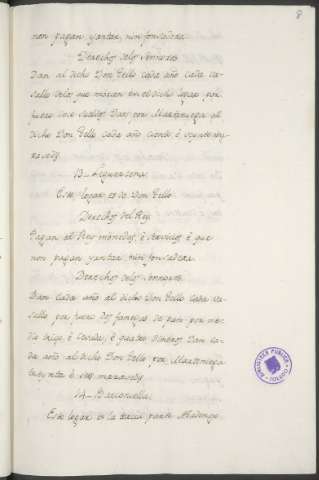 8
non pagan yantar, nin fonsadera.
Derechos delos Sennores
Dan al dicho Don Tello cada año cada va-
sallo delos que moran en el dicho logar por
fuero dos sueldos Dan por Martiniega al
dicho Don Tello cada año ciento é
maravedis.
13 -
Este logar es de Don Tello
Derechos del Rey
Pagan al Rey monedas, é servicios, é que
non pagan yantar nin fonsadera.
Derechos delos Sennores
Dan cada año al dicho Don Tello cada va-
sallo por fuero dos fanegas de pan por me-
dio trigo, é cevada, é quatro dineros Dan ca-
da año al dicho Don Tello por Martiniega
treynta é seis maravedis
14 - Barconiella
Este logar es la tercia parte Abadengo
BIBLIOTECA PUBLICA
TOLEDO